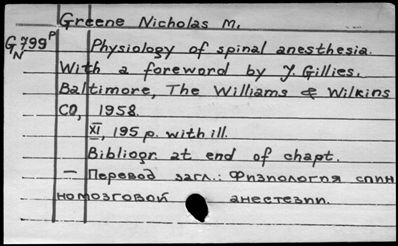 Greene Nicholas M.
G 799 P
N
Physiology of spinal anesthesia.
With a foreword by J. Gillies.
Baltimore, The Williams & Wilkins
CO, 1958.
XI, 195 p. with ill.
Bibliogr at end of chapt.
— Перевод загл.: Физиология спин
номозговой анестезии.